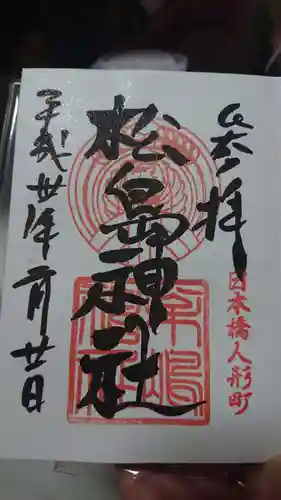 奉拝
日本橋人形町
松島神社
平成丗年一月廿日